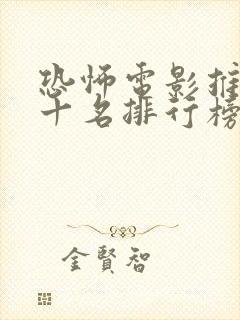 恐怖電影推
十名排行榜
金賢智